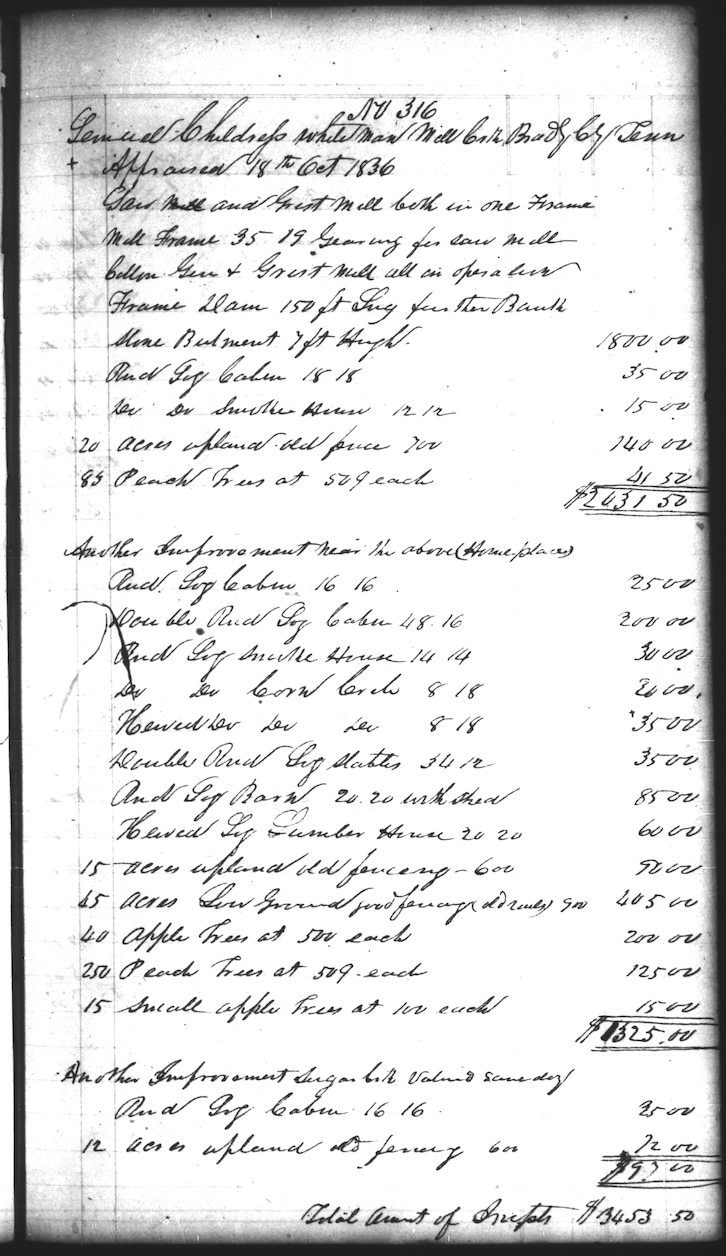 No 316
Lemuel Childress white man Mill Crk Brady Cty Tenn
+ Appraised 18th Oct 1836
Saw Mill and Grist Mill both in one Frame
Mill Frame 35 19 Gearing for saw mill
Cotton Gin & Grist Mill all in operation
Frame Dam 150 ft Long further Bank
Stone Butment 7 ft High. 1800.00
Rnd Log Cabin 18 18 35 00
Do Do Smoke House 12 12 15 00
20 acres upland old fence 700 140 00
83 Peach Trees at 50¢ each 41 50
$2031 50
Another Improvement near the above (Home place)
Rnd. Log Cabin 16 16 25 00
Double Rnd Log Cabin 48.16 200 00
Rnd Log Smoke House 14 14 30 00
Do Do Corn Crib 8 18 20 00
Hewed Do Do Do 8 18 35 00
Double Rnd Log Stables 34 12 35 00
Rnd Log Barn 20.20 with shed 85 00
Hewed Log Lumber House 20 20 60 00
15 acres upland old fenceng - 600 90 00
45 acres Low Ground good fencing (old rails) 900 405 00
40 Apple Trees at 500 each 200 00
250 Peach Trees at 50¢ each 125 00
15 Small apple Trees at 100 each 15 00
$1325.00
Another Improvement Sugar Crk Valued same day
Rnd Log Cabin 16 16 25 00
12 acres upland old fencing 600 72 00
$97 00
Total Amnt of $3453 50